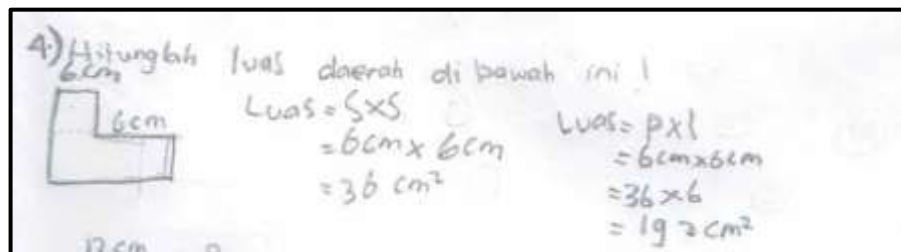 4.) Hitunglah luas daerah di bawah ini !
6cm
6cm
Luas = S x S
= 6cm x 6cm
= 36 cm²
Luas = p x l
= 6cm x 6cm
= 36 x 6
= 192 cm²
12 cm